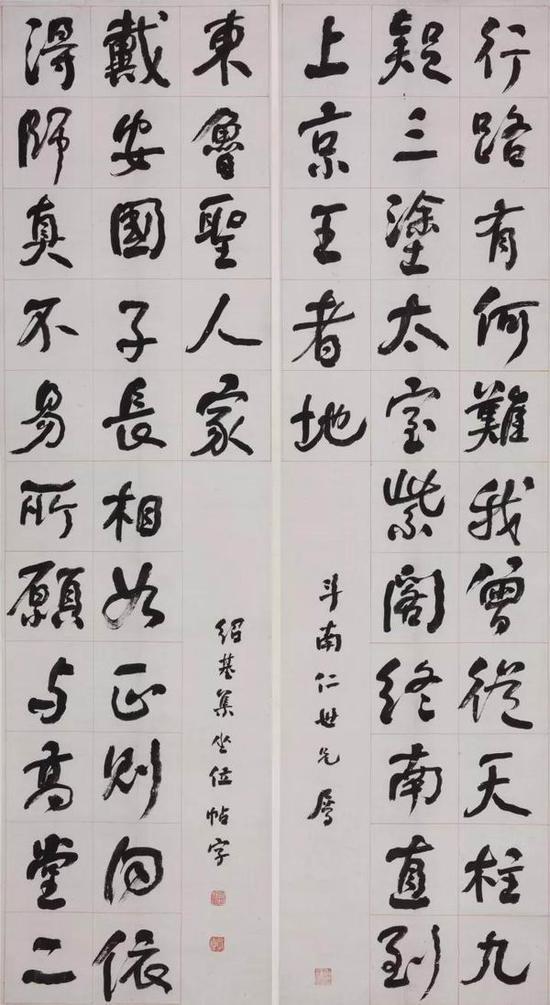 行路有何難我曾從天柱九
疑三塗太室紫閣終南直到
上京王者地
斗南仁世兄屬
淂師真不易所願与高堂二
戴安國子長相如正則向依
東魯聖人家
紹基集坐位帖字